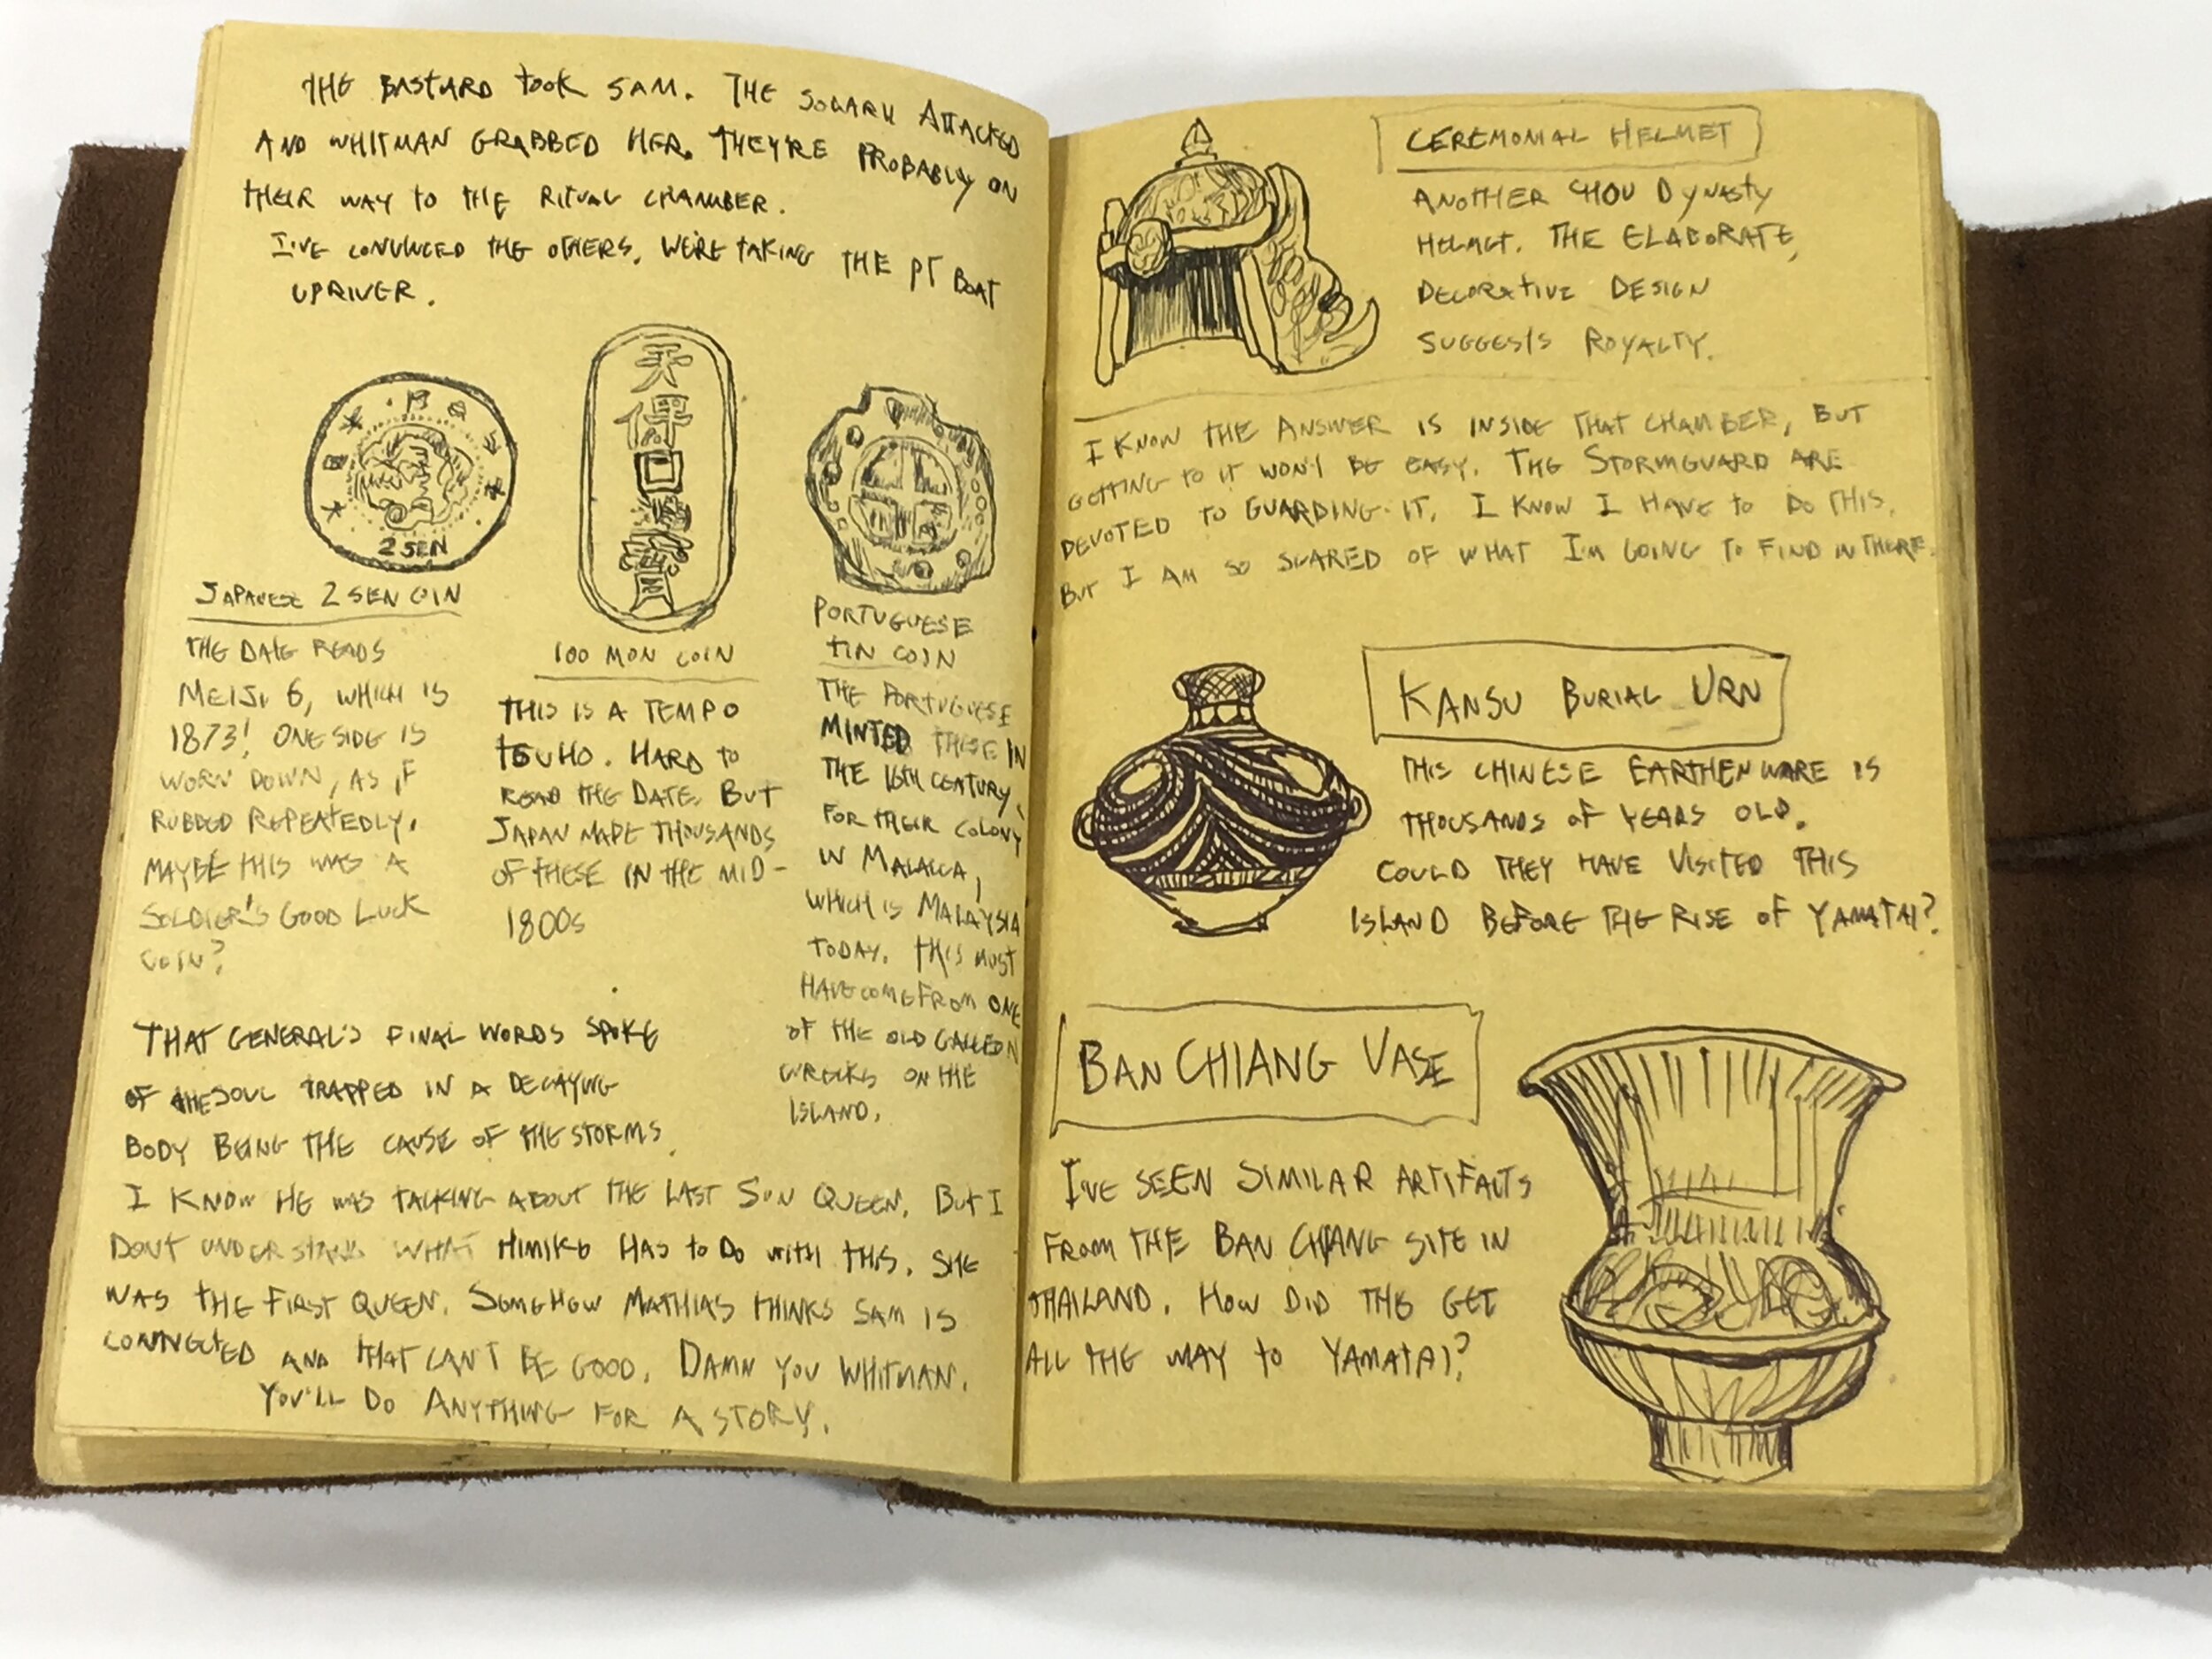 THE BASTARD TOOK SAM. THE SOLARII ATTACKED
AND WHITMAN GRABBED HER. THEY'RE PROBABLY ON
THEIR WAY TO THE RITUAL CHAMBER.
I'VE CONVINCED THE OTHERS. WE'RE TAKING THE PT BOAT
UPRIVER.
2 SEN
天
保
JAPANESE 2 SEN COIN
THE DATE READS
MEIJI 6, WHICH IS
1873! ONE SIDE IS
WORN DOWN, AS IF
RUBBED REPEATEDLY.
MAYBE THIS WAS A
SOLDIER'S GOOD LUCK
COIN?
100 MON COIN
THIS IS A TEMPO
TSUHO. HARD TO
READ THE DATE. BUT
JAPAN MADE THOUSANDS
OF THESE IN THE MID-
1800s
PORTUGUESE
TIN COIN
THE PORTUGUESE
MINTED THESE IN
THE 16TH CENTURY,
FOR THEIR COLONY
IN MALACCA,
WHICH IS MALAYSIA
TODAY. THIS MUST
HAVE COME FROM ONE
OF THE OLD GALLEON
WRECKS ON THE
ISLAND.
THAT GENERAL'S FINAL WORDS SPOKE
OF THE SOUL TRAPPED IN A DECAYING
BODY BEING THE CAUSE OF THE STORMS.
I KNOW HE WAS TALKING ABOUT THE LAST SUN QUEEN. BUT I
DON'T UNDERSTAND WHAT HIMIKO HAS TO DO WITH THIS. SHE
WAS THE FIRST QUEEN. SOMEHOW MATHIAS THINKS SAM IS
CONNECTED AND THAT CAN'T BE GOOD. DAMN YOU WHITMAN.
YOU'LL DO ANYTHING FOR A STORY.
CEREMONIAL HELMET
ANOTHER CHOU DYNASTY
HELMET. THE ELABORATE,
DECORATIVE DESIGN
SUGGESTS ROYALTY.
I KNOW THE ANSWER IS INSIDE THAT CHAMBER, BUT
GETTING TO IT WON'T BE EASY. THE STORMGUARD ARE
DEVOTED TO GUARDING IT. I KNOW I HAVE TO DO THIS.
BUT I AM SO SCARED OF WHAT I'M GOING TO FIND IN THERE.
KANSU BURIAL URN
THIS CHINESE EARTHENWARE IS
THOUSANDS OF YEARS OLD.
COULD THEY HAVE VISITED THIS
ISLAND BEFORE THE RISE OF YAMATAI?
BAN CHIANG VASE
I'VE SEEN SIMILAR ARTIFACTS
FROM THE BAN CHIANG SITE IN
THAILAND. HOW DID THE GET
ALL THE WAY TO YAMATAI?